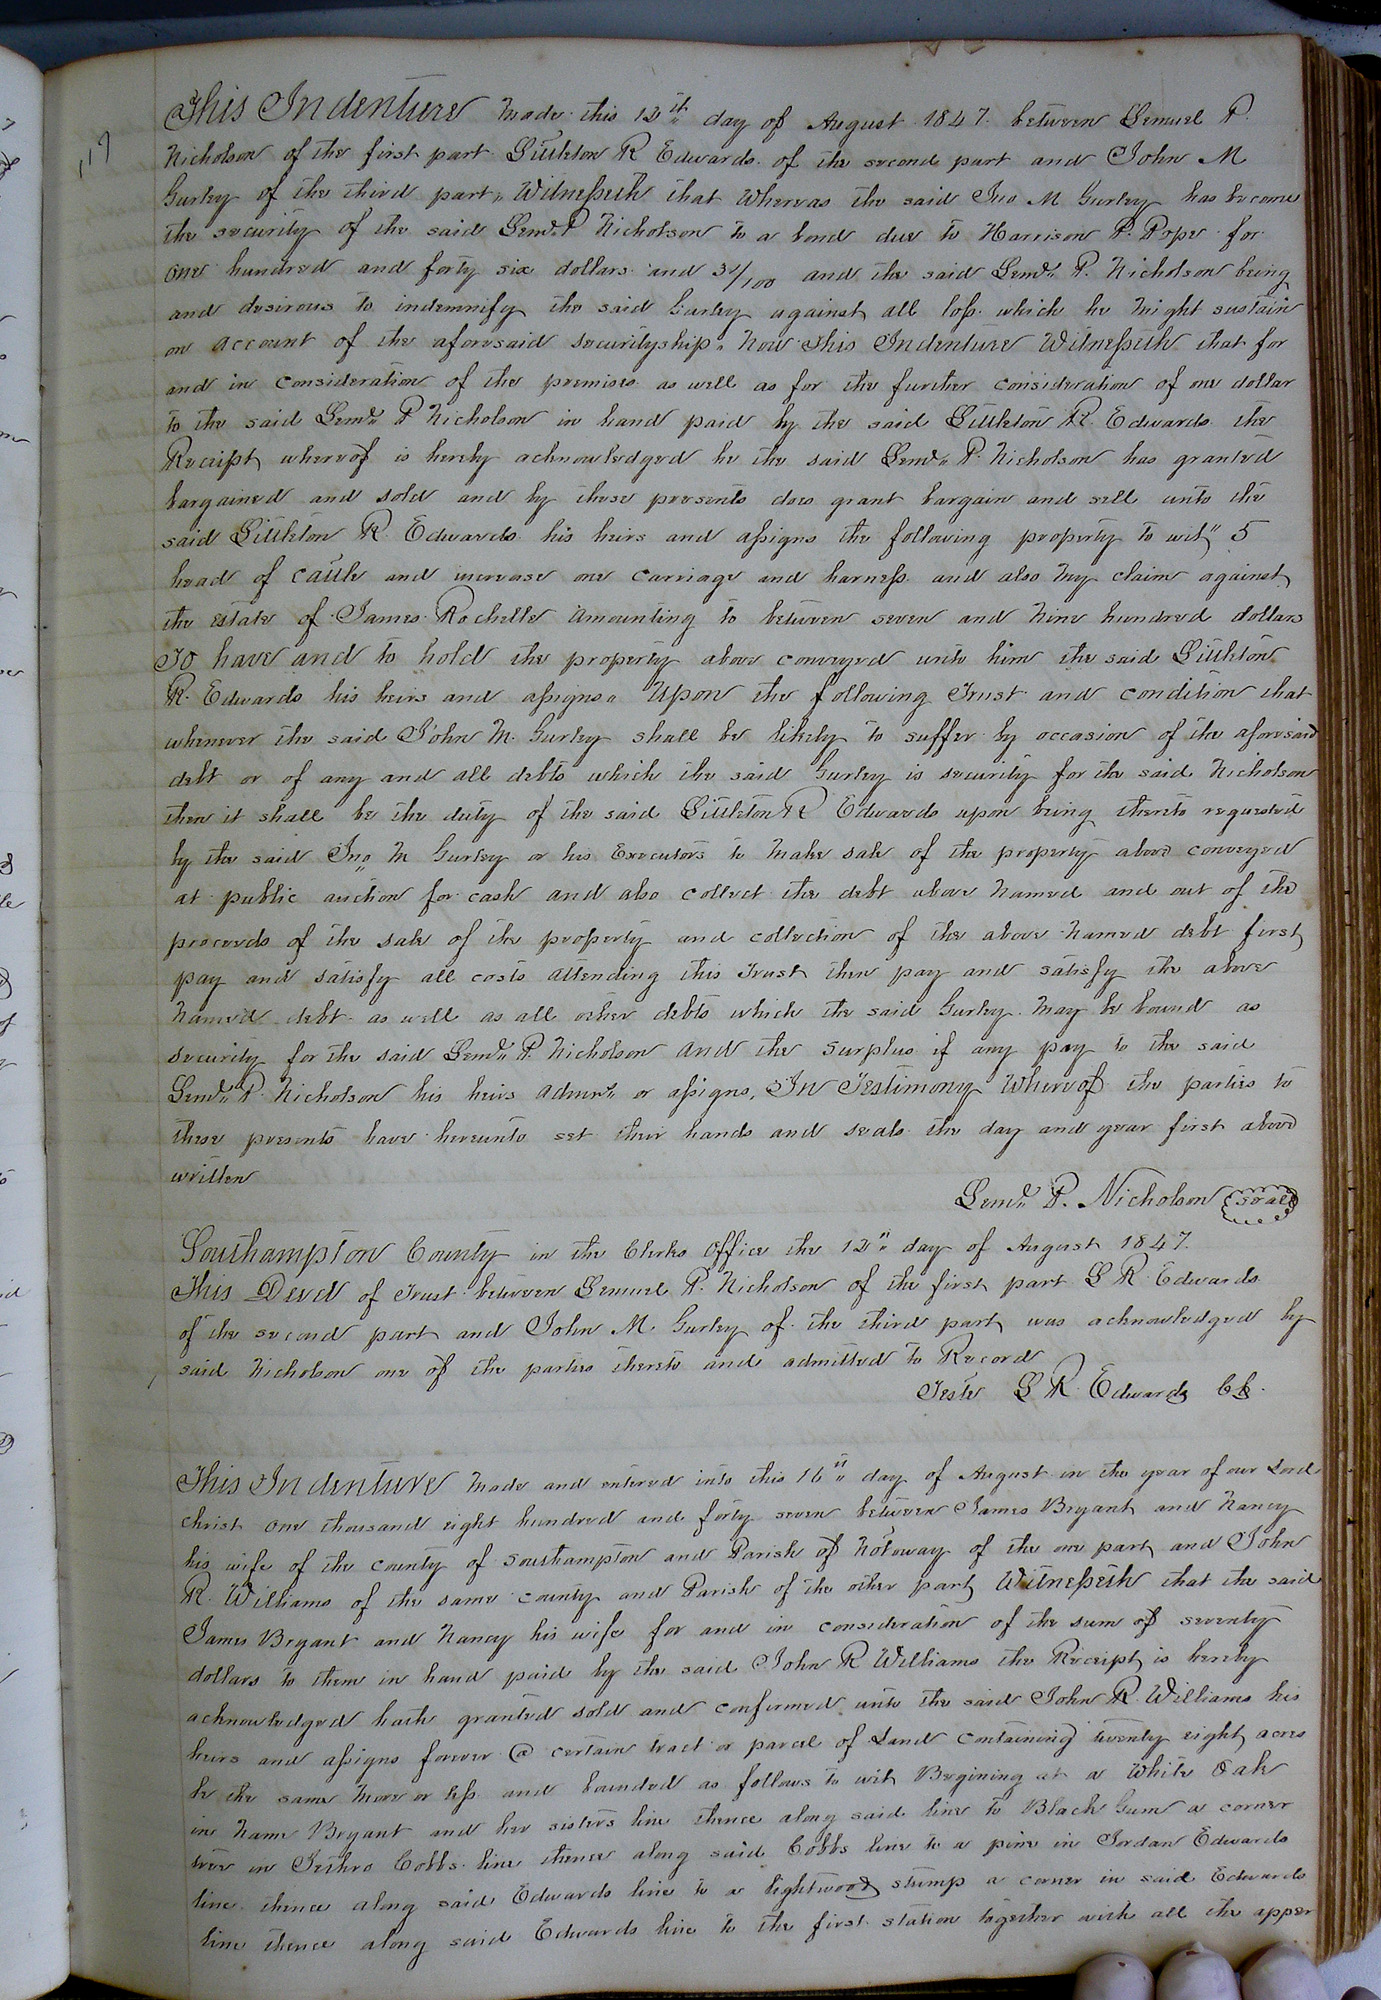 This Indenture made this 12th day of August 1847 between Lemuel P.
Nicholson of the first part Littleton R Edwards of the second part and John M
Gurley of the third part Witnesseth that Whereas the said Jno M Gurley has become
the security of the said Leml. P Nicholson to a bond due to Harrison P. Pope for
one hundred and forty six dollars and /100 and the said Leml. P. Nicholson being
and desirous to indemnify the said Gurley against all loss which he might sustain
on account of the aforesaid securityship. Now this Indenture Witnesseth that for
and in consideration of the premises as well as for the further consideration of one dollar
to the said Leml. P Nicholson in hand paid by the said Littleton R. Edwards the
Receipt whereof is hereby acknowledged he the said Leml. P. Nicholson has granted
bargained and sold and by these presents does grant bargain and sell unto the
said Littleton R. Edwards his heirs and assigns the following property to wit" 5
head of cattle and increase one carriage and harness and also my claim against
the estate of James Rochelle amounting to between seven and nine hundred dollars
To have and to hold the property above conveyed unto him the said Littleton
R. Edwards his heirs and assigns" Upon the following Trust and condition that
whenever the said John M. Gurley shall be likely to suffer by occasion of the aforesaid
debt or of any and all debts which the said Gurley is security for the said Nicholson
then it shall be the duty of the said Littleton R Edwards upon being thereto requested
by the said Jno. M Gurley or his Executors to make sale of the property above conveyed
at public auction for cash and also collect the debt above named and out of the
proceeds of the sale of the property and collection of the above named debt first
pay and satisfy all costs attending this Trust then pay and satisfy the above
named debt as well as all other debts which the said Gurley may be bound as
security for the said Leml. P. Nicholson and the surplus if any pay to the said
Leml. P. Nicholson his heirs admrs. or assigns, In Testimony Whereof the parties to
these presents have hereunto set their hands and seals the day and year first above
written
Leml. P. Nicholson Seal
Southampton County in the Clerks Office the 12" day of August 1847.
This Deed of Trust between Lemuel P. Nicholson of the first part L R Edwards
of the second part and John M. Gurley of the third part was acknowledged by
said Nicholson one of the parties thereto and admitted to Record
Teste L R Edwards Clk.
This Indenture made and entered into this 16th day of August in the year of our Lord
christ one thousand eight hundred and forty seven between James Bryant and Nancy
his wife of the county of Southampton and Parish of Notoway of the one part and John
R. Williams of the same county and Parish of the other part Witnesseth that the said
James Bryant and Nancy his wife for and in consideration of the sum of seventy
dollars to them in hand paid by the said John R Williams the Receipt is hereby
acknowledged hath granted sold and confirmed unto the said John R. Williams his
heirs and assigns forever @ certain tract or parcel of Land containing twenty eight acres
be the same more or less and bounded as follows to wit Begining at a White Oak
in Bryant and her sisters line thence along said line to Black Gum a corner
tree in Jethro Cobbs line thence along said Cobbs line to a pine in Jordan Edwards
line thence along said Edwards line to a lightwood stump a corner in said Edwards
line thence along said Edwards line to the first station together with all the apper